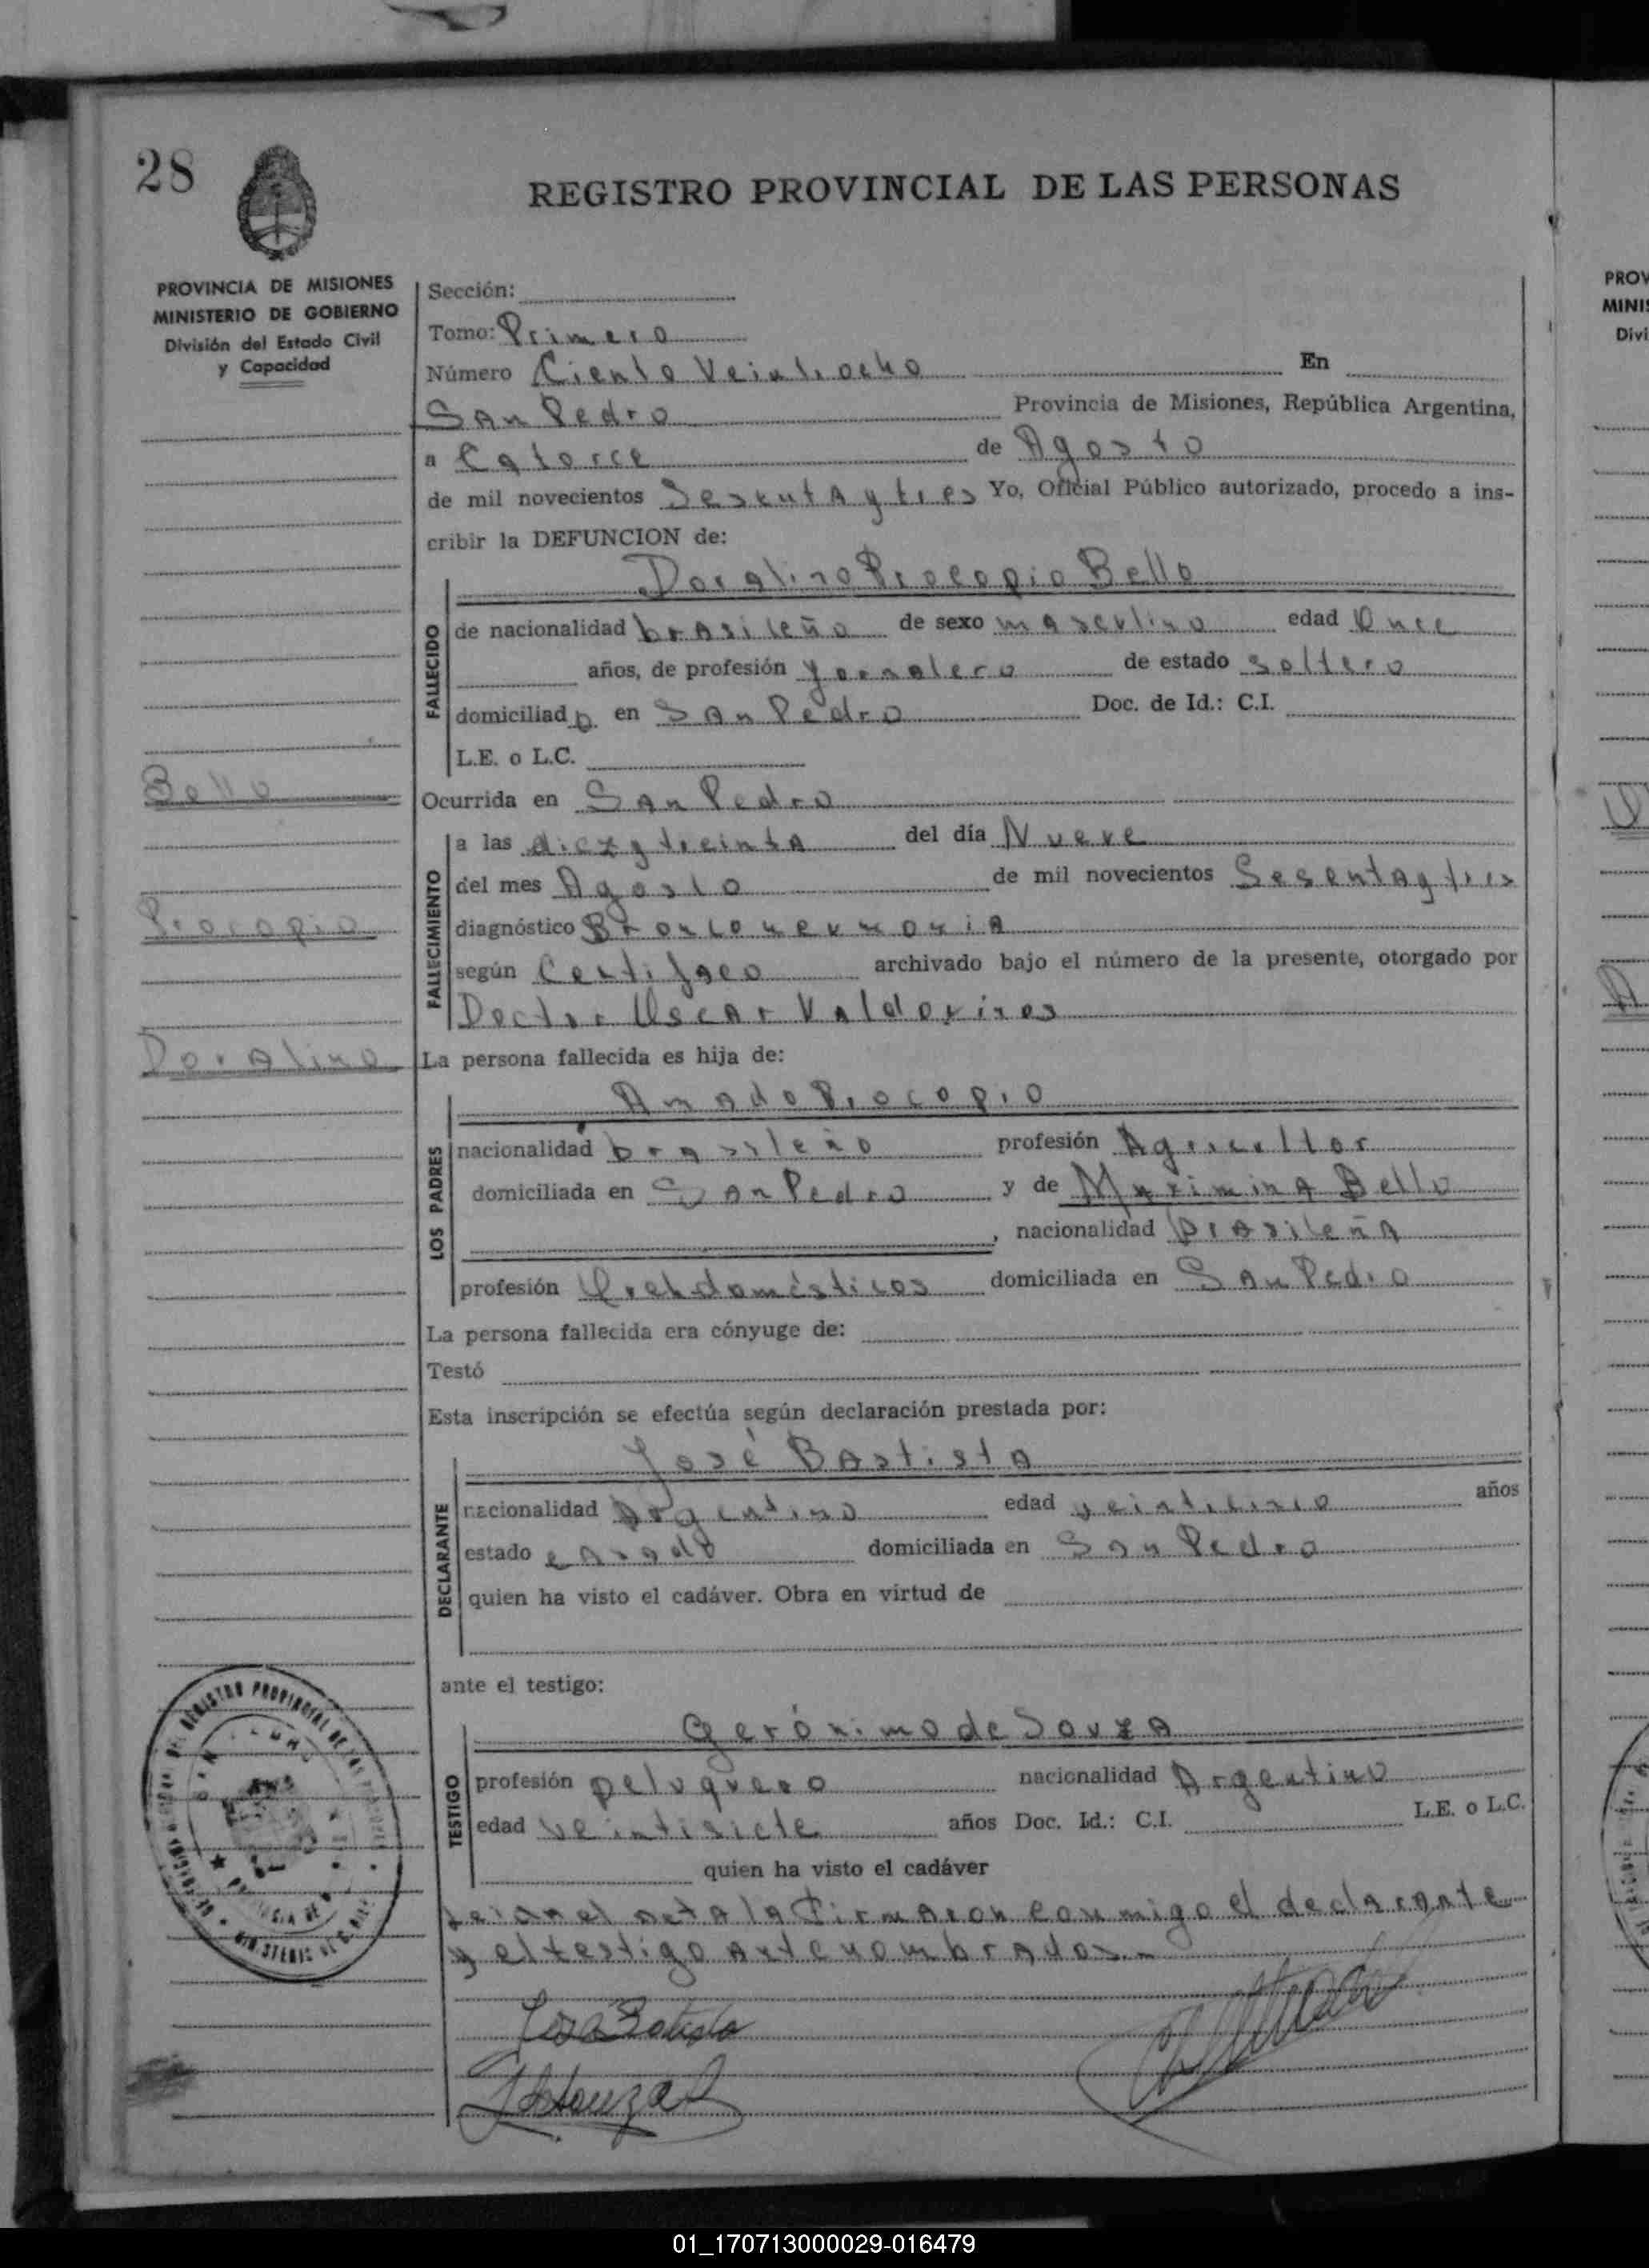 28
REGISTRO PROVINCIAL DE LAS PERSONAS
PROVINCIA DE MISIONES
MINISTERIO DE GOBIERNO
División del Estado Civil
y Capacidad
Sección:
Tomo: Primero
Número Ciento Veintiocho En
San Pedro Provincia de Misiones, República Argentina,
a Catorce de Agosto
de mil novecientos Sesenta y tres Yo, Oficial Público autorizado, procedo a ins-
cribir la DEFUNCION de:
Doralino Procopio Bello
FALLECIDO
de nacionalidad brasileño de sexo masculino edad Once
años, de profesión jornalero de estado soltero
domiciliado en San Pedro Doc. de Id.: C.I.
L.E. o L.C.
Bello
Ocurrida en San Pedro
FALLECIMIENTO
a las diez y treinta del día Nueve
del mes Agosto de mil novecientos Sesenta y tres
Procopio
diagnóstico Bronconeumonia
según archivado bajo el número de la presente, otorgado por
Doctor Oscar Valdovinos
Doralino
La persona fallecida es hija de:
Amado Procopio
LOS PADRES
nacionalidad brasileño profesión Agricultor
domiciliada en San Pedro y de Maximina Bello
, nacionalidad brasileña
profesión Qrehdomésticos domiciliada en San Pedro
La persona fallecida era cónyuge de:
Testó
Esta inscripción se efectúa según declaración prestada por:
José Bastista
DECLARANTE
nacionalidad Argentino edad veinticinco años
estado casado domiciliada en San Pedro
quien ha visto el cadáver. Obra en virtud de
ante el testigo:
Gerónimo de Souza
TESTIGO
profesión peluquero nacionalidad Argentino
edad veintisiete años Doc. Id.: C.I. L.E. o L.C.
quien ha visto el cadáver
Leida el acta la firmaron conmigo el declarante
y el testigo antenombrados.-
REGISTRO PROVINCIAL DE LAS
José Batista
01_170713000029-016479